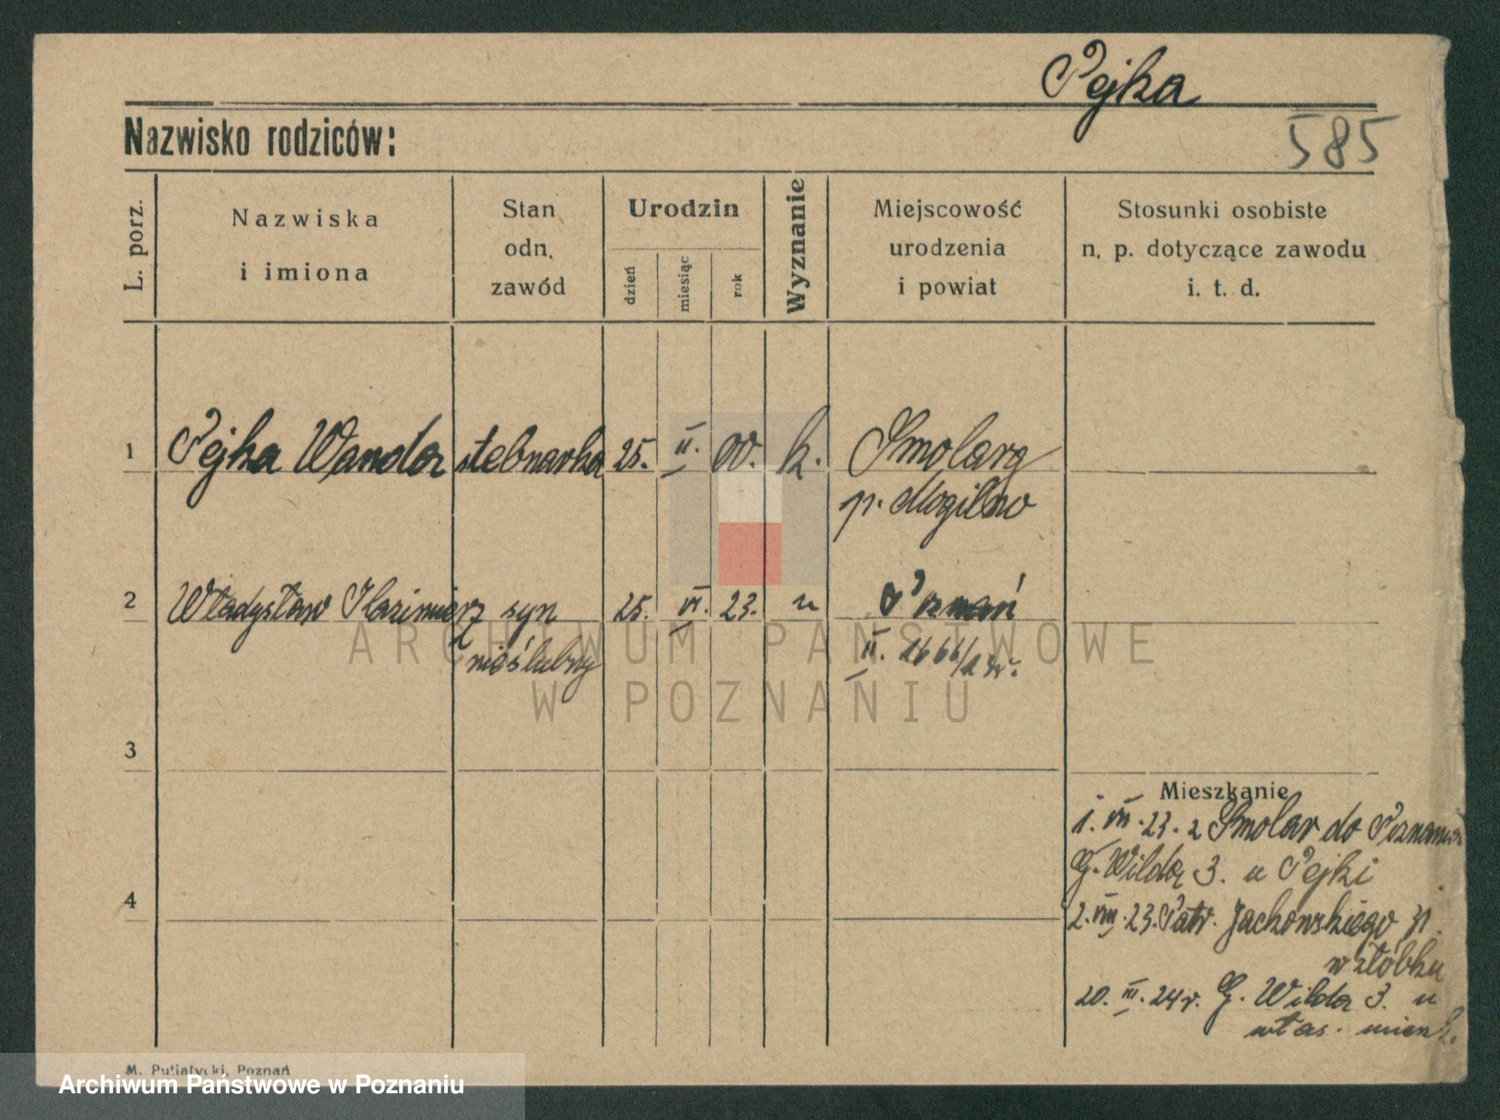 Pejka
Nazwisko rodziców:
585
L. porz.
Nazwiska
i imiona
Stan
odn.
zawód
Urodzin
dzień
miesiąc
rok
Wyznanie
Miejscowość
urodzenia
i powiat
Stosunki osobiste
n. p. dotyczące zawodu
i. t. d.
1 Pejka Wanda stebnarka 25. II. 00. k. Smolary
p. Mogilno
2 Władysław Kazimierz syn 25. VI. 23. " Poznań
nieślubny II. 1666/23r.
ARCHIWUM PAŃSTWOWE
W POZNANIU
3
Mieszkanie
1. VII. 23. z Smolar do Poznania
G. Wilda 3. u Pejki
4
2. VIII. 23. Patr. Jackowskiego 31.
w żłobku
20. III. 24r. G. Wilda 3. u
włas. mienk.
M. Putiatycki, Poznań
Archiwum Państwowe w Poznaniu